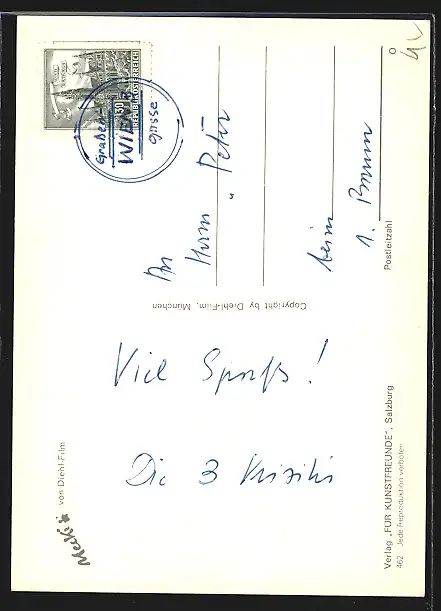 30
REPUBLIK ÖSTERREICH
Graben-
WIEN
gasse
An
Herrn
„ Peter
beim
1. Brunnen
Postleitzahl
Copyright by Diehl-Film, München
Viel Spaß!
Die 3
Mecki
von Diehl-Film
Verlag „FÜR KUNSTFREUNDE", Salzburg
462 Jede Reproduktion verboten